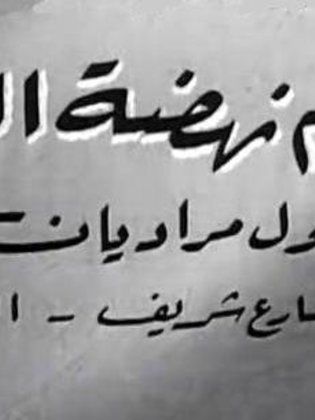 م نهضة ال
ول مراديان
ارع شريف - ا